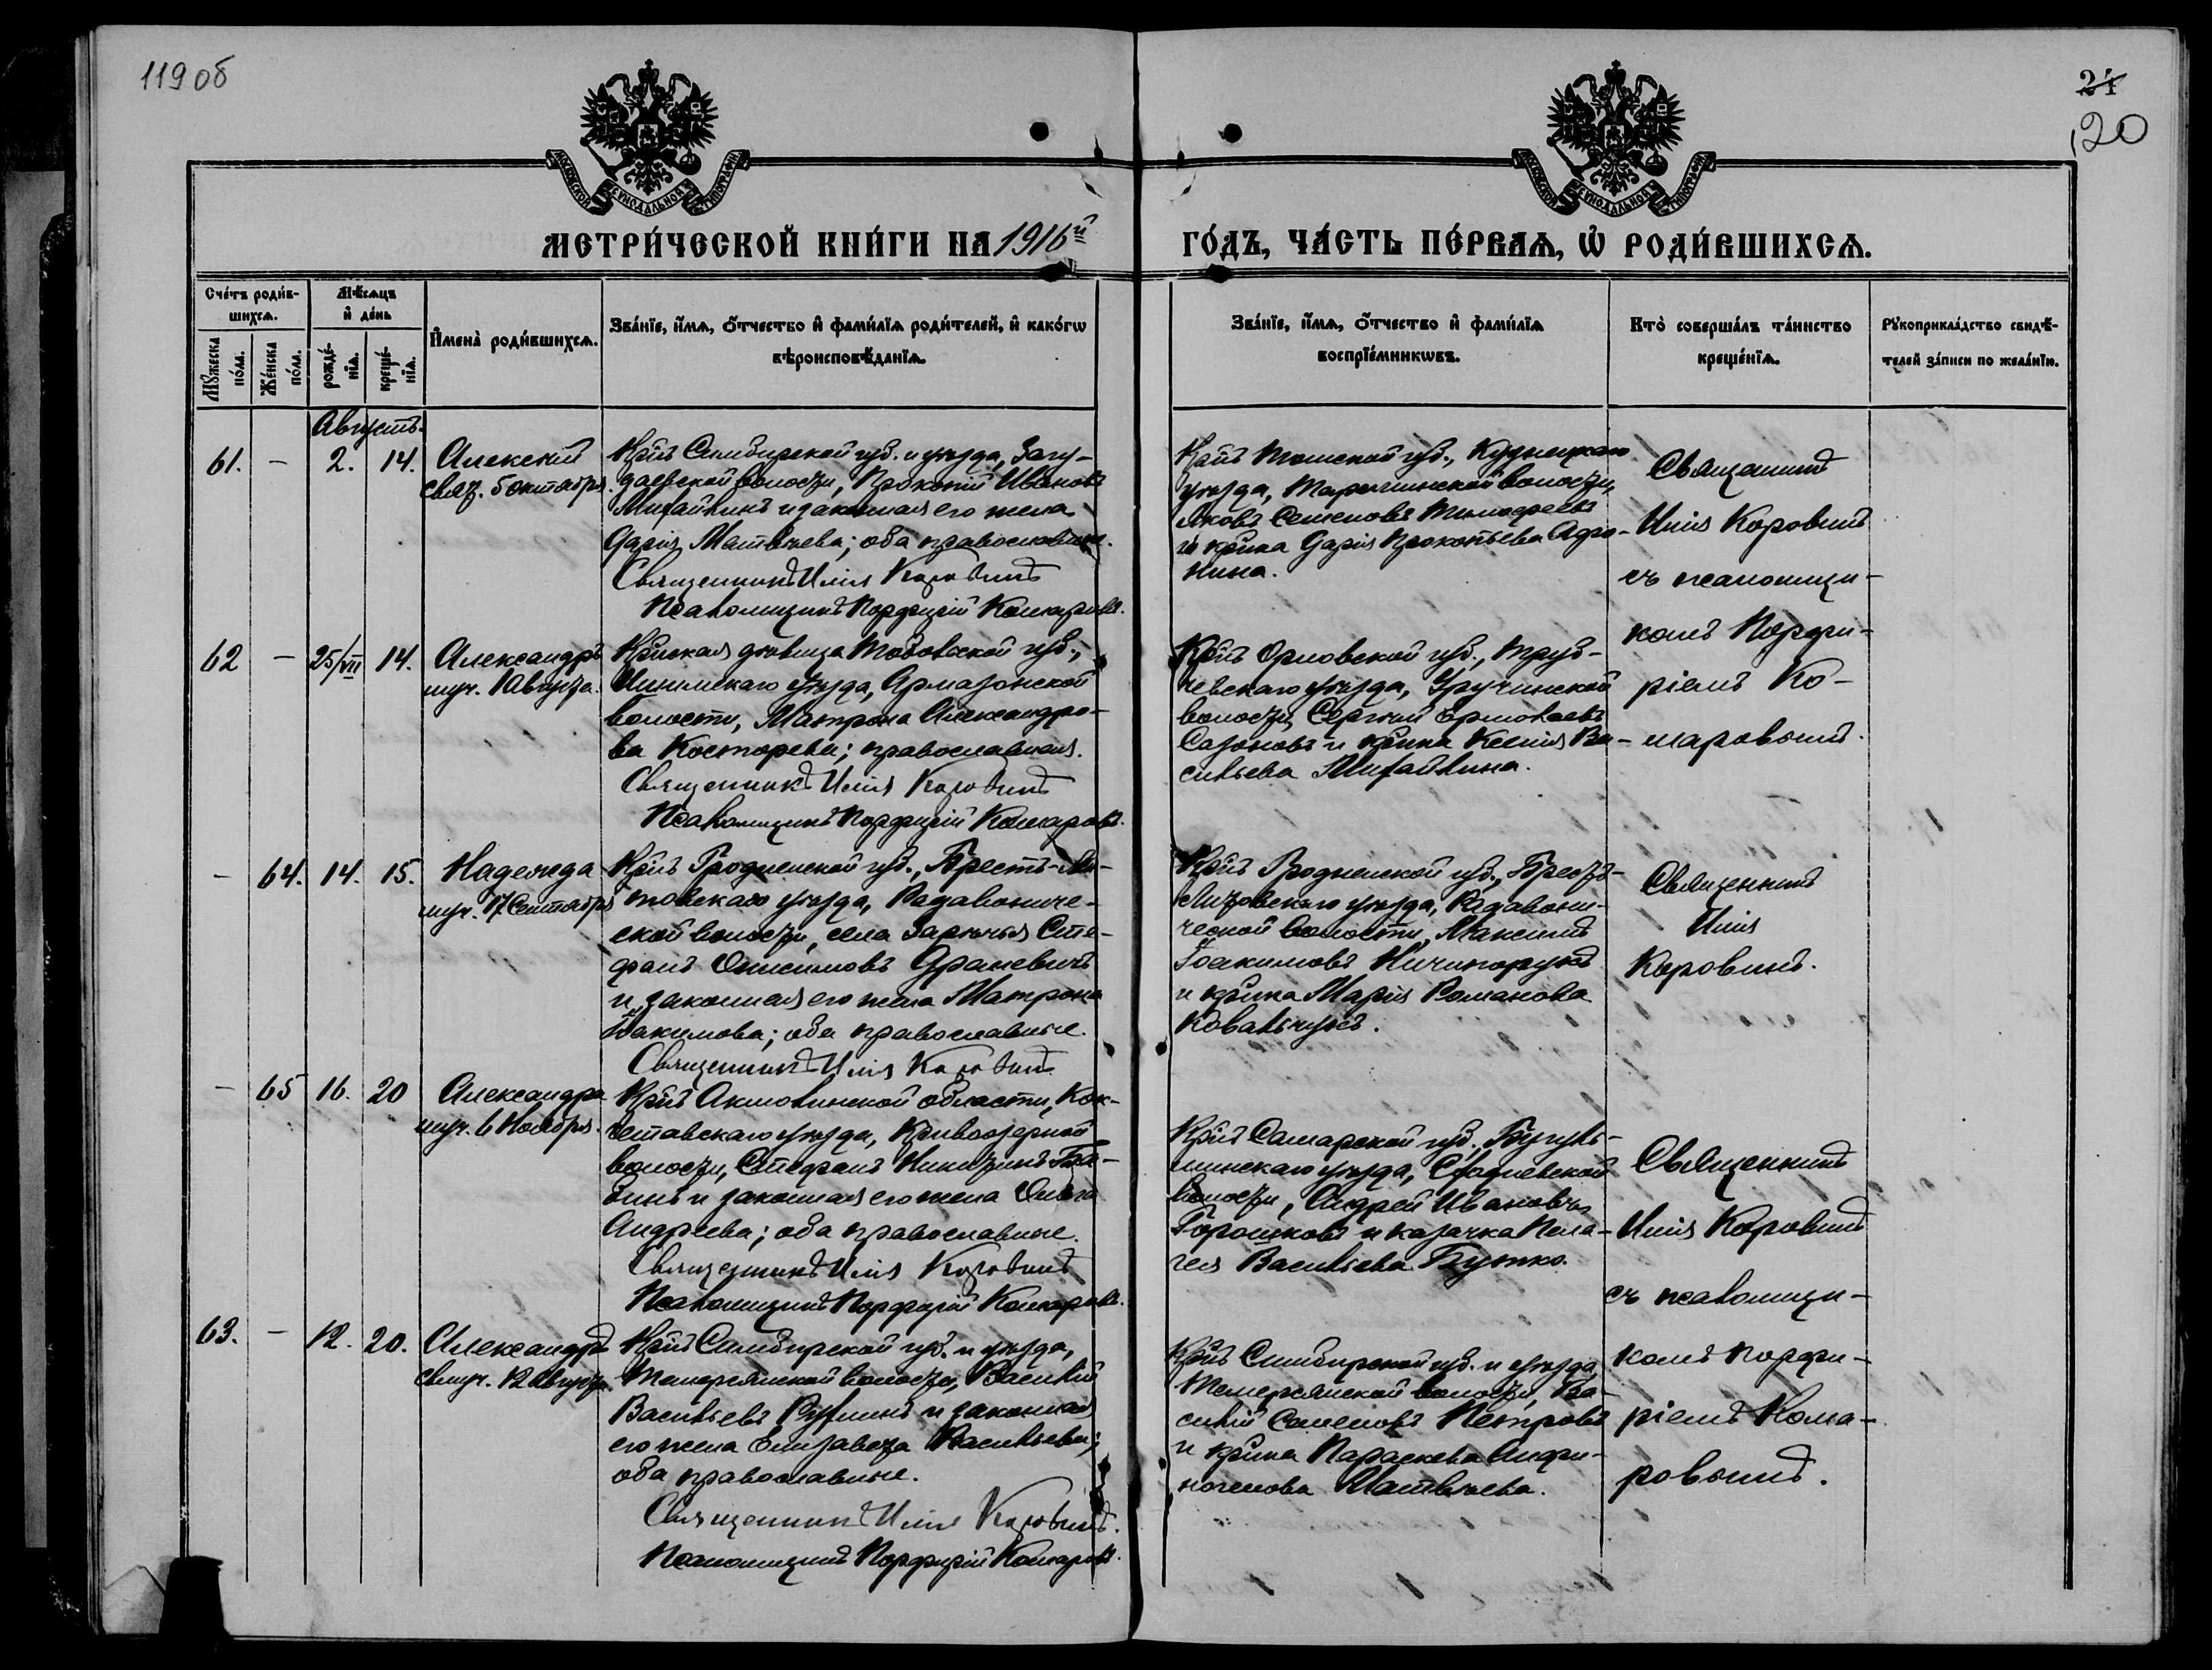 119 об
24
120
МОСКОВСКОЙ СѴНОДАЛЬНОЙ ТИПОГРАФІИ
МОСКОВСКОЙ СѴНОДАЛЬНОЙ ТИПОГРАФІИ
МЕТРИ́ЧЕСКОЙ КНИ́ГИ НА 1916й
ГО́ДЪ, ЧА́СТЬ ПЕ́РВАѦ, Ѡ҆ РОДИ́ВШИХСѦ.
Сче́тъ роди́в-
шихсѧ.
Мꙋ́жеска по́ла.
Же́нска по́ла.
Мѣ́сѧцъ
и҆ де́нь
рожде́-
нїѧ.
креще́-
нїѧ.
И҆мена̀ роди́вшихсѧ.
Зва́нїе, и҆́мѧ, ѻ҆́тчество и҆ фами́лїѧ роди́телей, и҆ како́гѡ
вѣроисповѣ́данїѧ.
Зва́нїе, и҆́мѧ, ѻ҆́тчество и҆ фами́лїѧ
воспрїе́мникѡвъ.
Кто̀ соверша́лъ та́инство
креще́нїѧ.
Рꙋкоприкла́дство свидѣ́-
телей за́писи по жела́нїю.
Августъ.
61. — 2. 14. Алексій
свят. 5 октября.
Кр̃нъ Симбирской губ. и уѣзда, Загу-
даевской волости, Прокопій Ивановъ
Михайлинъ и законная его жена
Дарія Матвѣева; оба православные.
Священникъ Илія Коровинъ
Псаломщикъ Порфирій Комаровъ.
Кр̃нъ Томской губ., Кузнецкаго
уѣзда, волости,
Яковъ Семеновъ Тимофеевъ
и кр̃нка Дарія Прокопьева Афо-
нина.
Священникъ
Илія Коровинъ
съ псаломщи-
комъ Порфи-
ріемъ Ко-
маровымъ.
62 — 25/VII 14. Александръ
муч. 1 Августа.
Кр̃нская дѣвица Тобольской губ.,
Ишимскаго уѣзда, Армазонской
волости, Матрона Александро-
ва Костарева; православная.
Священникъ Илія Коровинъ
Псаломщикъ Порфирій Комаровъ.
Кр̃нъ Орловской губ., Труб-
чевскаго уѣзда, Уручинской
волости, Сергѣй Ермолаевъ
Сазоновъ и кр̃нка Ксенія Ва-
сильева Михайлина.
— 64. 14. 15. Надежда
муч. 17 Сентября
Кр̃нъ Гродненской губ., Брестъ-Ли-
товскаго уѣзда, Радваниче-
ской волости, села Зарѣчья Сте-
фанъ Онисимовъ Драневичъ
и законная его жена Матрона
Іоакимова; оба православные.
Священникъ Илія Коровинъ
Кр̃нъ Гродненской губ., Брестъ-
Литовскаго уѣзда, Радвани-
ческой волости, Максимъ
Іоакимовъ Ничипорукъ
и кр̃нка Марія Романова
Ковальчукъ.
Священникъ
Илія
Коровинъ.
— 65 16. 20 Александра
муч. 6 Ноября.
Кр̃нъ Акмолинской области, Кок-
четавскаго уѣзда, Кривоозерной
волости, Стефанъ Никитинъ Ба-
бинъ и законная его жена Ольга
Андреева; оба православные.
Священникъ Илія Коровинъ
Псаломщикъ Порфирій Комаровъ.
Кр̃нъ Самарской губ., Бугуль-
минскаго уѣзда,
волости, Андрей Ивановъ
Горошковъ и казачка Пела-
гея Васильева Бутко.
Священникъ
Илія Коровинъ
съ псаломщи-
комъ Порфи-
ріемъ Кома-
ровымъ.
63. — 12. 20. Александръ
свмуч. 12 Августа.
Кр̃нъ Симбирской губ. и уѣзда,
Темерсянской волости, Василій
Васильевъ и законная
его жена Елизавета Васильева;
оба православные.
Священникъ Илія Коровинъ.
Псаломщикъ Порфирій Комаровъ.
Кр̃нъ Симбирской губ. и уѣзда,
Темерсянской волости, Ва-
силій Семеновъ Петровъ
и кр̃нка Параскева Анфи-
ногенова Матвѣева.